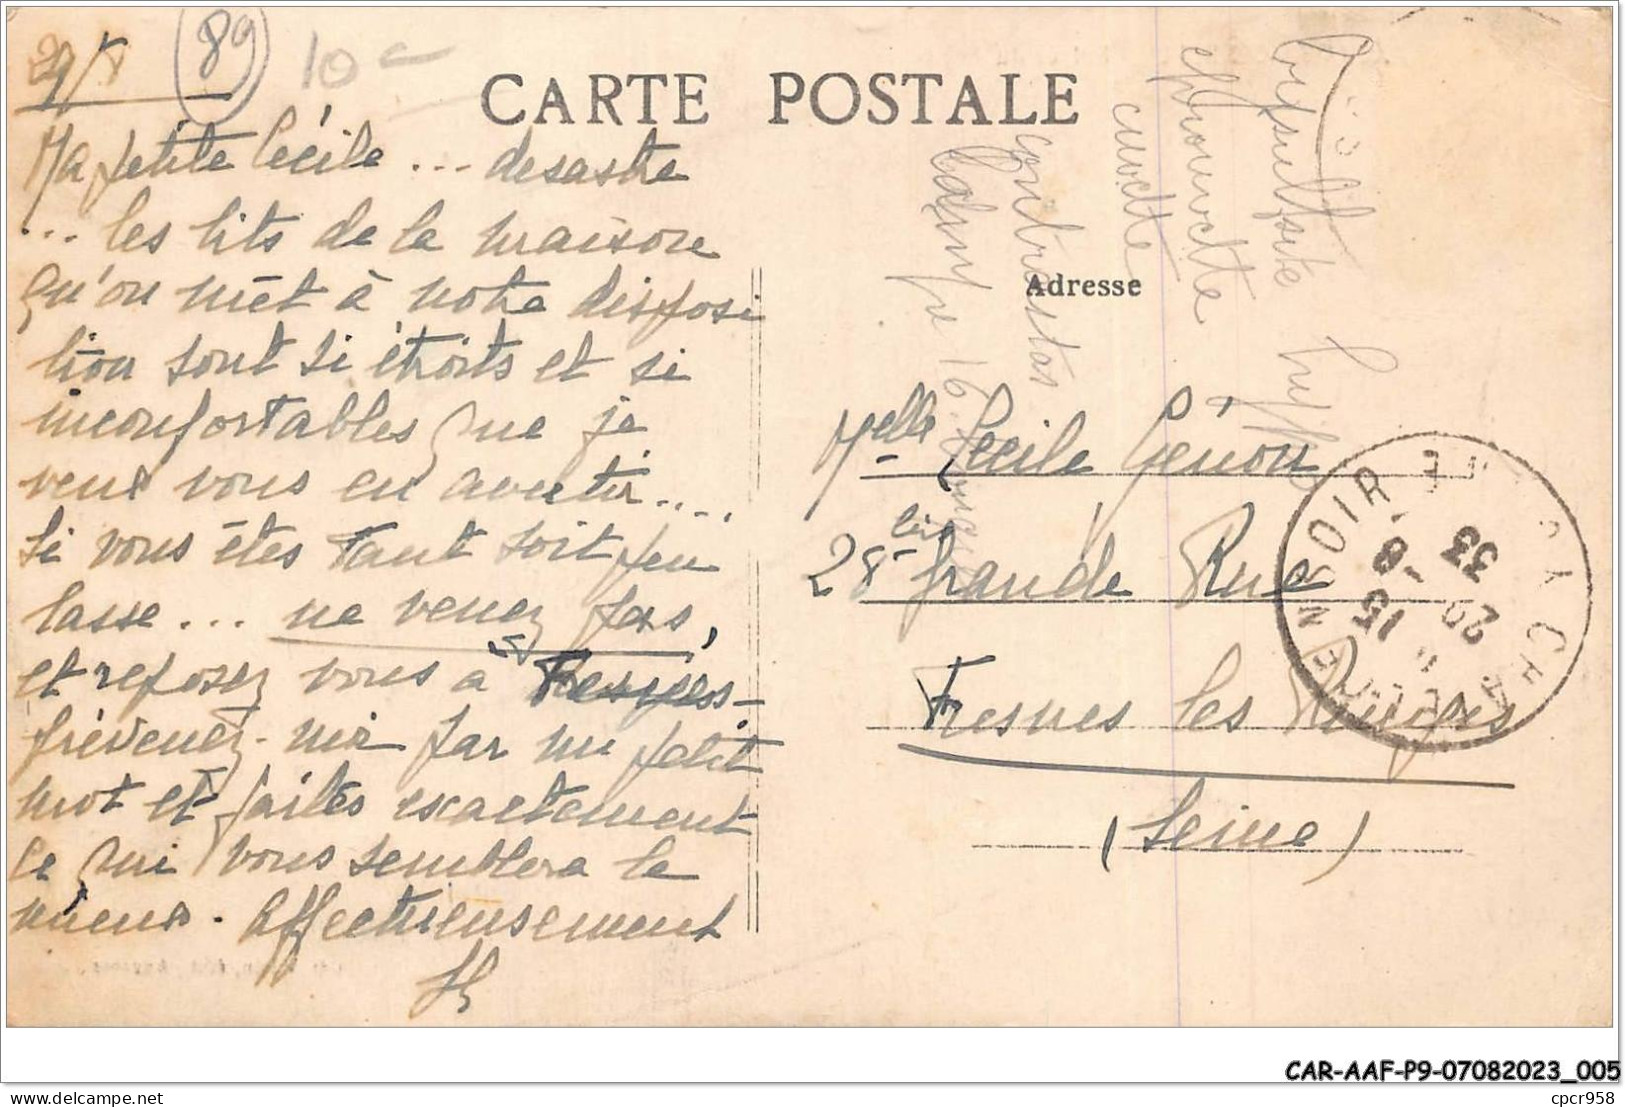 29/8
89
10
CARTE POSTALE
Ma petite Cécile ... desastre
... les lits de la maison
qu'on met à notre disposi
tion sont si étroits et si
inconfortables que je
veux vous en avertir....
Si vous êtes tant soit peu
lasse... ne venez pas,
et reposez vous à Fresnes -
prévenez-moi par un petit
mot et faites exactement
ce qui vous semblera le
mieux. Affectueusement
Adresse
Melle Cécile Génon
28 bis Grande Rue
Fresnes les Rungis
(Seine)
éprouvette
cuvette
contrastas
16
15 - 8
29
33
CAR-AAF-P9-07082023_005
cpcr958